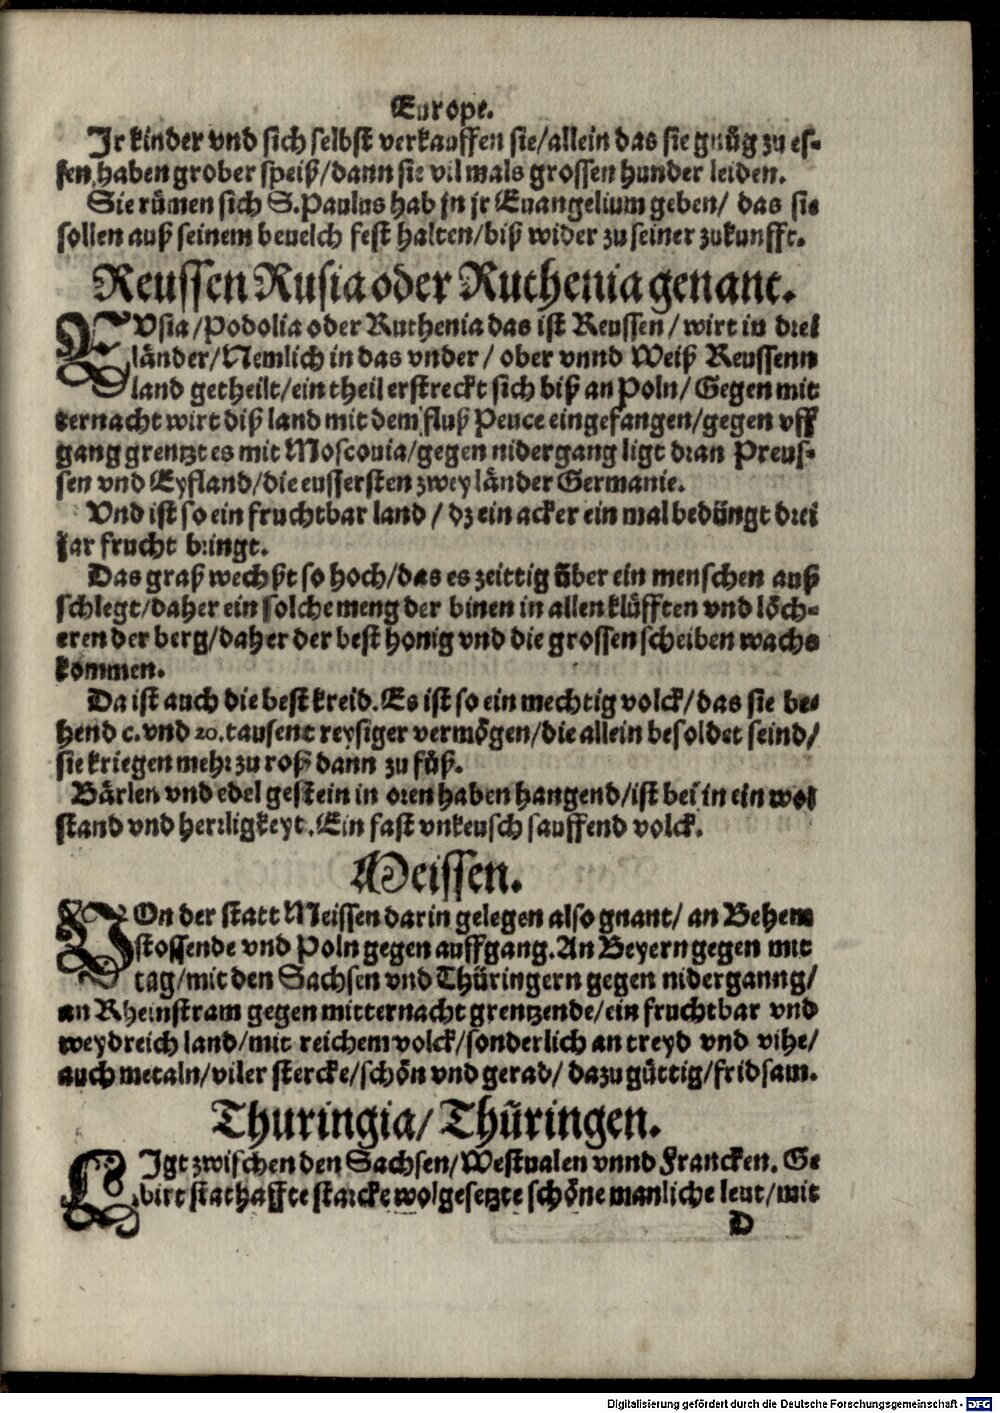 Europe.
Jr kinder vnd sich selbst verkauffen sie/allein das sie gnůg zu es-
sen haben grober speiß/dann sie vilmals grossen hunder leiden.
Sie rümen sich S.Paulus hab jn jr Euangelium geben/ das sie
sollen auß seinem beuelch fest halten/biß wider zu seiner zukunfft.
Reussen Rusia oder Ruthenia genant.
RVsia/Podolia oder Ruthenia das ist Reussen/wirt in drei
länder/Nemlich in das vnder/ ober vnnd Weiß Reussenn
land getheilt/ein theil erstreckt sich biß an Poln/ Gegen mit
ternacht wirt diß land mit dem fluß Peuce eingefangen/gegen vff
gang grentzt es mit Moscouia/gegen nidergang ligt dran Preus-
sen vnd Eyfland/die eussersten zwey länder Germanie.
Vnd ist so ein fruchtbar land / dz ein acker ein mal bedüngt drei
jar frucht bringt.
Das graß wechßt so hoch/das es zeittig über ein menschen auß
schlegt/daher ein solche meng der binen in allen klüfften vnd löch-
eren der berg/daher der best honig vnd die grossen scheiben wachs
kommen.
Da ist auch die best kreid. Es ist so ein mechtig volck/das sie be-
hend c. vnd 20. tausent reysiger vermögen/die allein besoldet seind/
sie kriegen mehr zu roß dann zu fůß.
Bärlen vnd edel gestein in oren haben hangend/ist bei in ein wol
stand vnd herrligkeyt. Ein fast vnkeusch sauffend volck.
Meissen.
VOn der statt Meissen darin gelegen also gnant/ an Behem
stossende vnd Poln gegen auffgang. An Beyern gegen mit
tag/mit den Sachsen vnd Thüringern gegen niderganng/
an Rheinstram gegen mitternacht grentzende/ein fruchtbar vnd
weydreich land/mit reichem volck/sonderlich an treyd vnd vihe/
auch metaln/viler stercke/schön vnd gerad/ dazu güttig/fridsam.
Thuringia/ Thüringen.
LIgt zwischen den Sachsen/Westualen vnnd Francken. Ge
birt stathaffte starcke wolgesetzte schöne manliche leut/mit
D
Digitalisierung gefördert durch die Deutsche Forschungsgemeinschaft - DFG